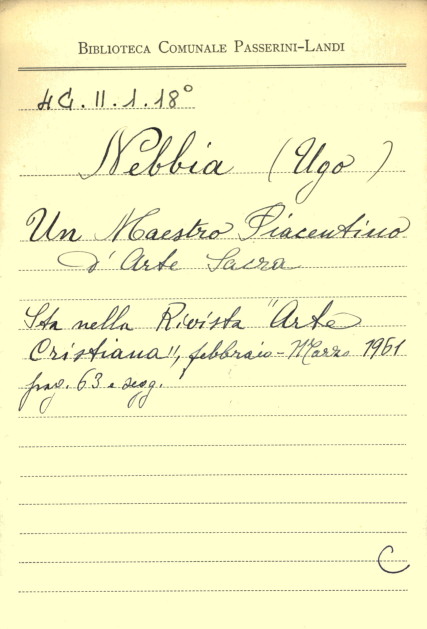 BIBLIOTECA COMUNALE PASSERINI-LANDI
4G.II.1.18°
Nebbia (Ugo)
Un Maestro Piacentino
d'Arte Sacra
Sta nella Rivista "Arte
Cristiana", febbraio-Marzo 1951
pag. 63 e segg.
C